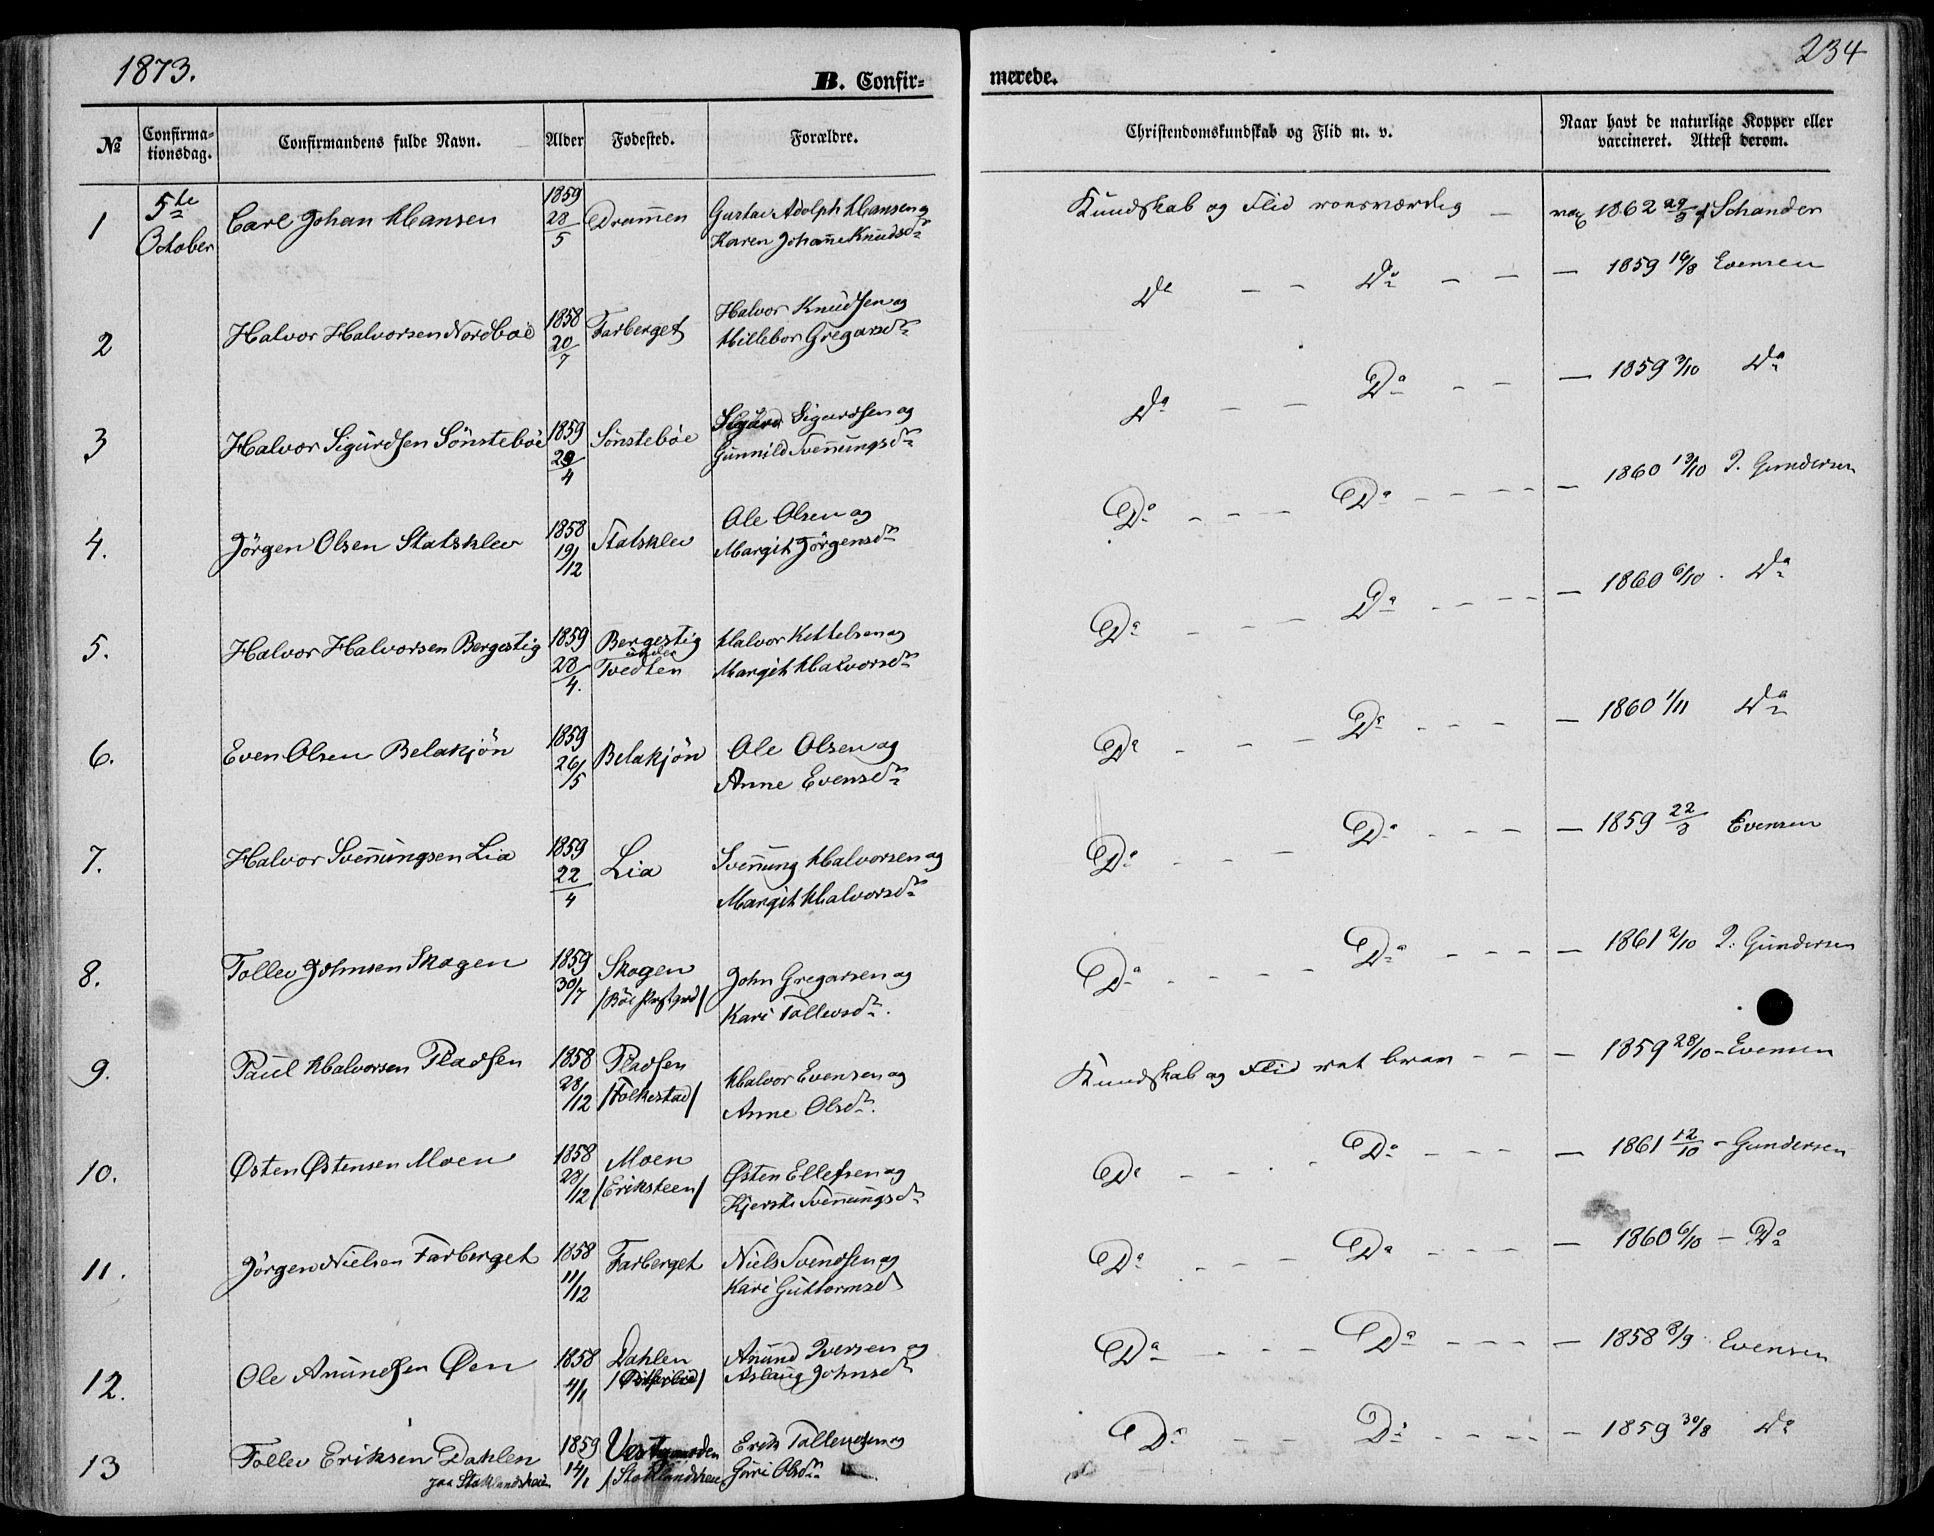 1873.
234
B. Confirmerede.
№ Confirmationsdag. Confirmandens fulde Navn. Alder Fødested. Forældre. Christendomskundskab og Flid m. v. Naar havt de naturlige Kopper eller vaccineret. Attest derom.
1 5te October Carl Johan Hansen 1859 28/5 Drammen Gustav Adolph Hansen og Karen Johanne Knudsdr Kundskab og Flid roesværdig — vac 1862 29/3 Schander
2 Halvor Halvorsen Nordbøe 1858 20/7 Farberget Halvor Knudsen og Hillebor Gregarsdr Do — — Do — — — 1859 16/8 Evensen
3 Halvor Sigurdsen Sønstebøe 1859 29/4 Sønstebøe Sigurd Sigurdsen og Gunnild Svennungsdr Do — — Do — — — 1859 3/10 Do
4. Jörgen Olsen Statsklev 1858 19/12 Statsklev Ole Olsen og Margit Jörgensdr Do - - - - Do - - - - — 1860 13/10 J. Gundersen
5. Halvor Halvorsen Bergestig 1859 28/4. Bergestig under Tvedten Halvor Kettelsen og Margit Halvorsdr Do - - - - Do - - - - — 1860 6/10 . Do
6. Even Olsen Belakjön 1859 26/5 Belakjön Ole Olsen og Anne Evensdr Do - - - - Do - - - — 1860 1/11 Do
7. Halvor Svennungsen Lia 1859 22/4 Lia Svennung Halvorsen og Margit Halvorsdr Do - - - - Do - - - — 1859 22/3 Evensen
8. Tollev Johnsen Skogen 1859 30/7 Skogen /Böe Præstgrd/ John Gregarsen og Kari Tollevsdr. Do - - - - Do - - - - — 1861 2/10 J. Gundersen
9. Paul Halvorsen Pladsen 1858 28/12 Pladsen /Folkestad/ Halvor Evensen og Anne Olsdr. Kundskab og Flid ret brav - - - — 1859 28/10 - Evensen
10. Østen Østensen Moen 1858 28/12 Moen /Eriksteen/ Østen Ellefsen og Kjersti Svennungsdr Do - - - - Do - - - — 1861 12/10 - Gundersen
11. Jörgen Nielsen Farberget 1858 11/12 Farberget Niels Svendsen og Kari Guttormsd Do - - - - Do - - - — 1860 6/10 — Do
12. Ole Anundsen Øen 1858 4/1 Dahlen Anund Iversen og Aslaug Johnsdr Do - - - - Do - - - - — 1858 8/9 . Evensen
13 Tollev Eriksen Dahlen paa Stoklandsheien 1859 14/1 Vestgaarden /Stoklandsheie Erik Tollevsen og Guri Olsdr Do - - - Do - - - - — 1859 30/8 Do